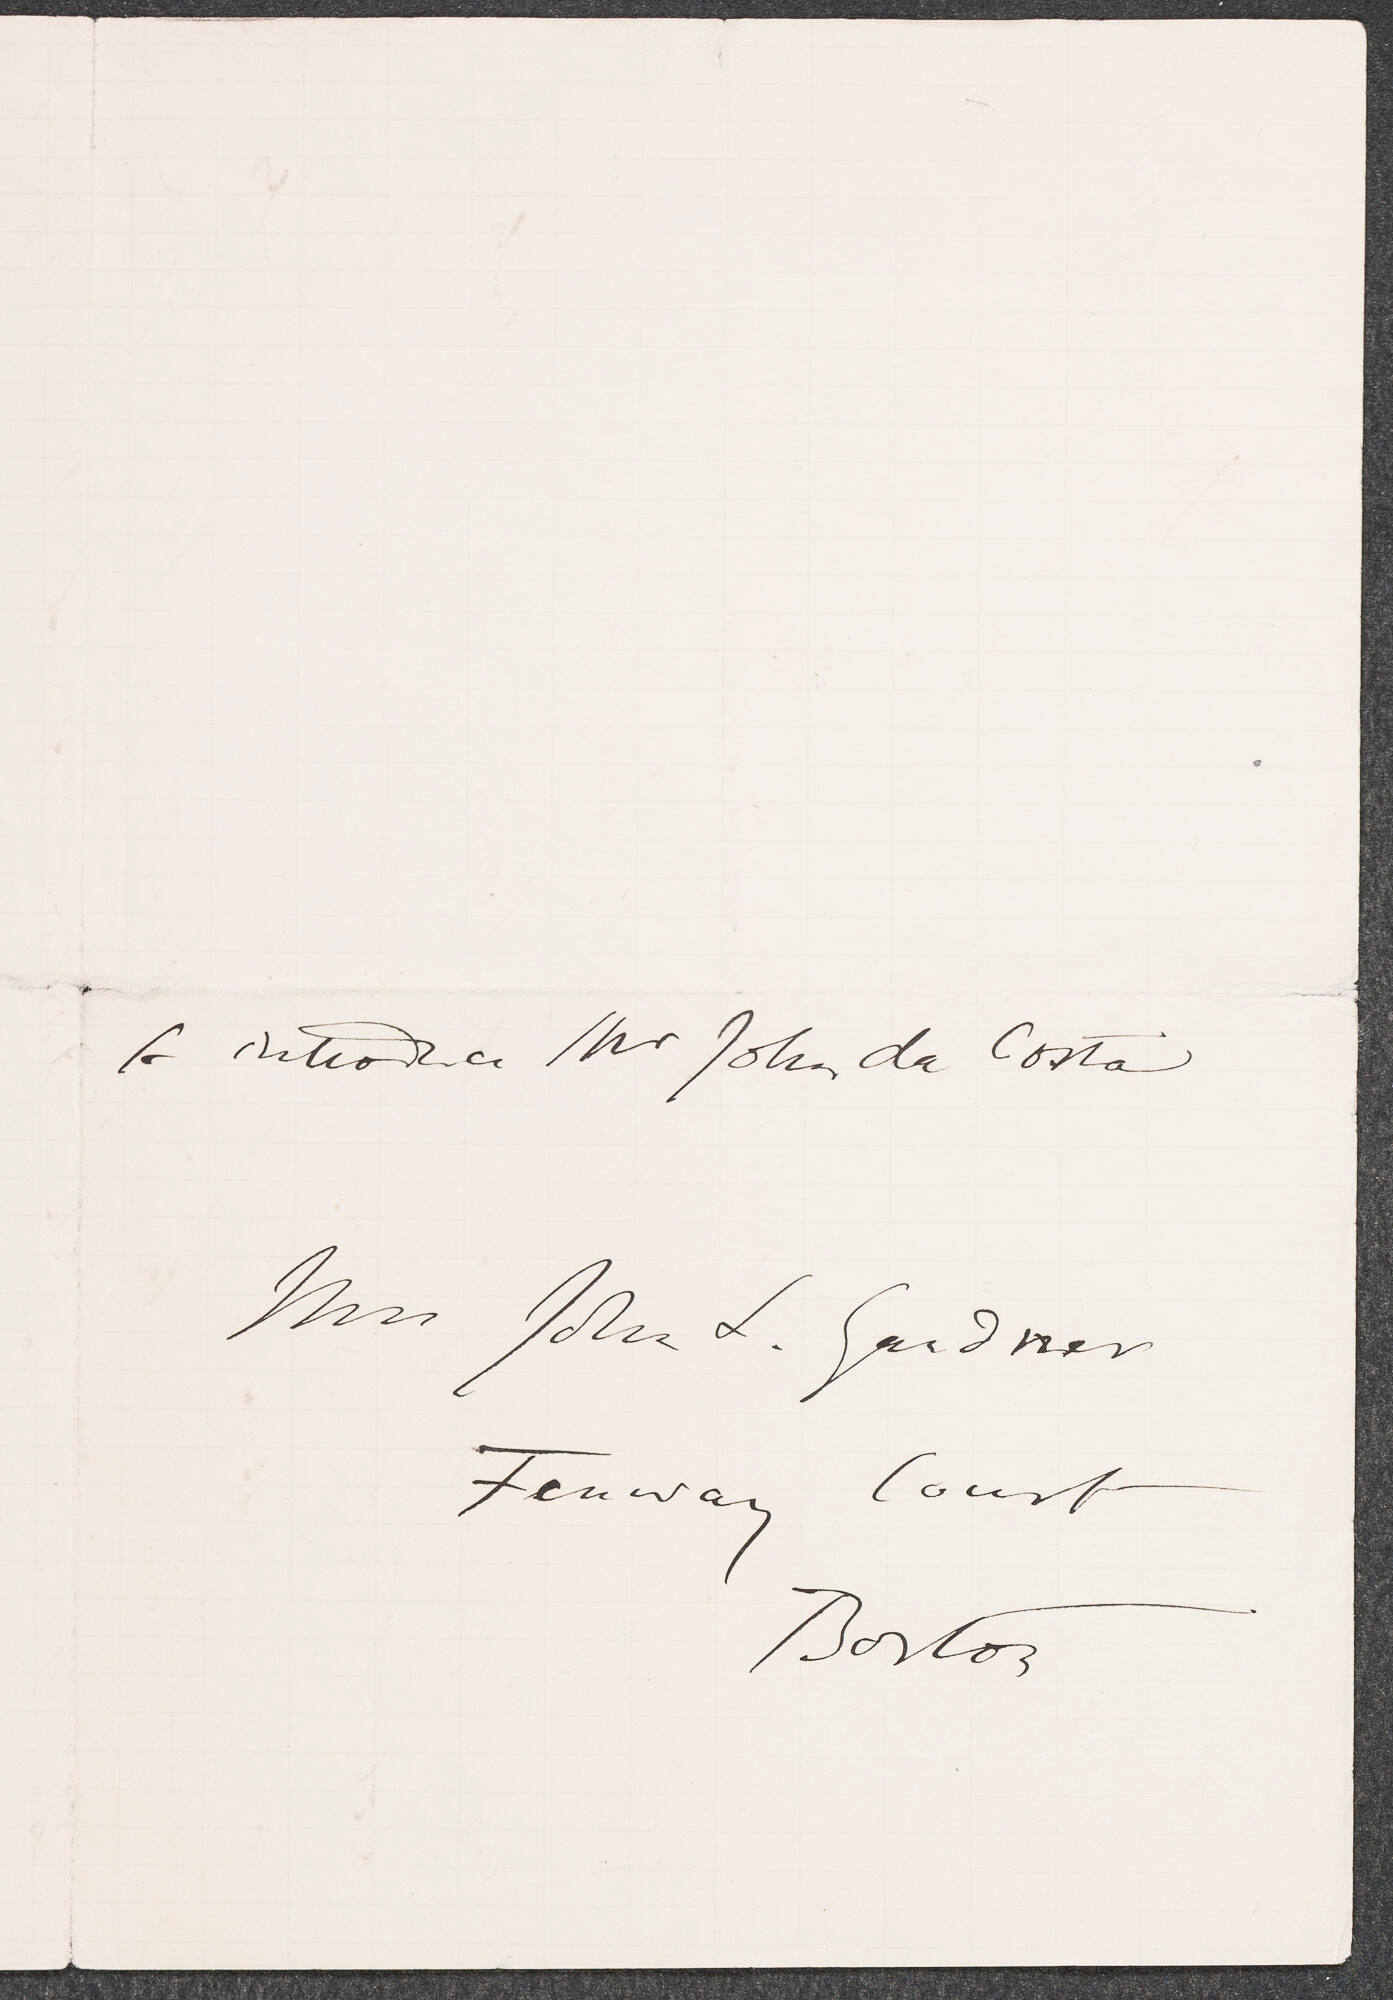 to introduce Mr John da Costa
Mrs John L. Gardner
Fenway Court
Boston